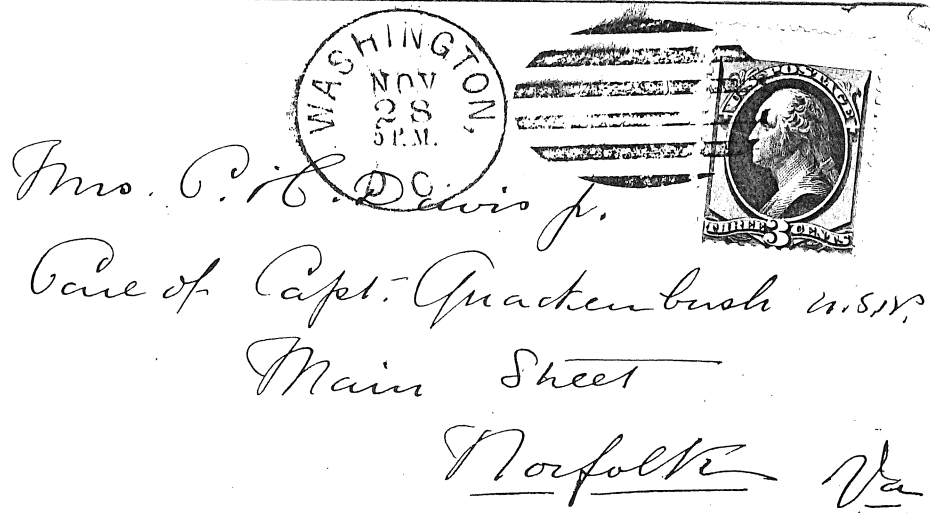 WASHINGTON,
NOV
28
5 P.M.
D.C.
U.S. POSTAGE
THREE 3 CENTS
Mrs. C. H. Davis Jr.
Care of Capt. Quackenbush U.S.N.
Main Street
Norfolk Va